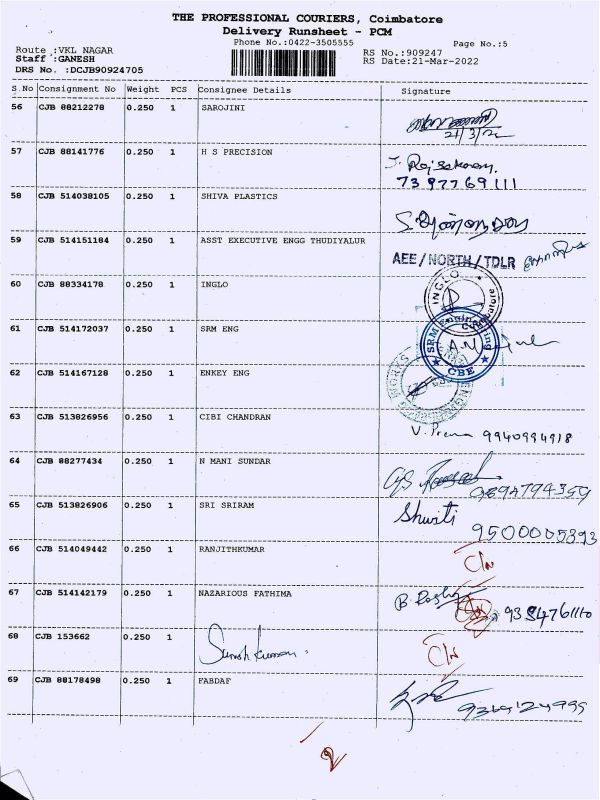 THE PROFESSIONAL COURIERS, Coimbatore
Delivery Runsheet - PCM
Phone No.:0422-3505555
Page No.:5
Route :VKL NAGAR
Staff :GANESH
DRS No. :DCJB90924705
RS No.:909247
RS Date:21-Mar-2022
S No Consignment No Weight PCS Consignee Details Signature
56 CJB 88212278 0.250 1 SAROJINI
57 CJB 88141776 0.250 1 H S PRECISION
7397769111
58 CJB 514038105 0.250 1 SHIVA PLASTICS
59 CJB 514151184 0.250 1 ASST EXECUTIVE ENGG THUDIYALUR
AEE/NORTH/TDLR
60 CJB 88334178 0.250 1 INGLO
INGLO
61 CJB 514172037 0.250 1 SRM ENG
SRM Engineering
CBE
62 CJB 514167128 0.250 1 ENKEY ENG
63 CJB 513826956 0.250 1 CIBI CHANDRAN
V. Prema 9940994918
64 CJB 88277434 0.250 1 N MANI SUNDAR
9894794359
65 CJB 513826906 0.250 1 SRI SRIRAM
Shruti
9500005393
66 CJB 514049442 0.250 1 RANJITHKUMAR
67 CJB 514142179 0.250 1 NAZARIOUS FATHIMA
68 CJB 153662 0.250 1
69 CJB 88178498 0.250 1 FABDAF
2